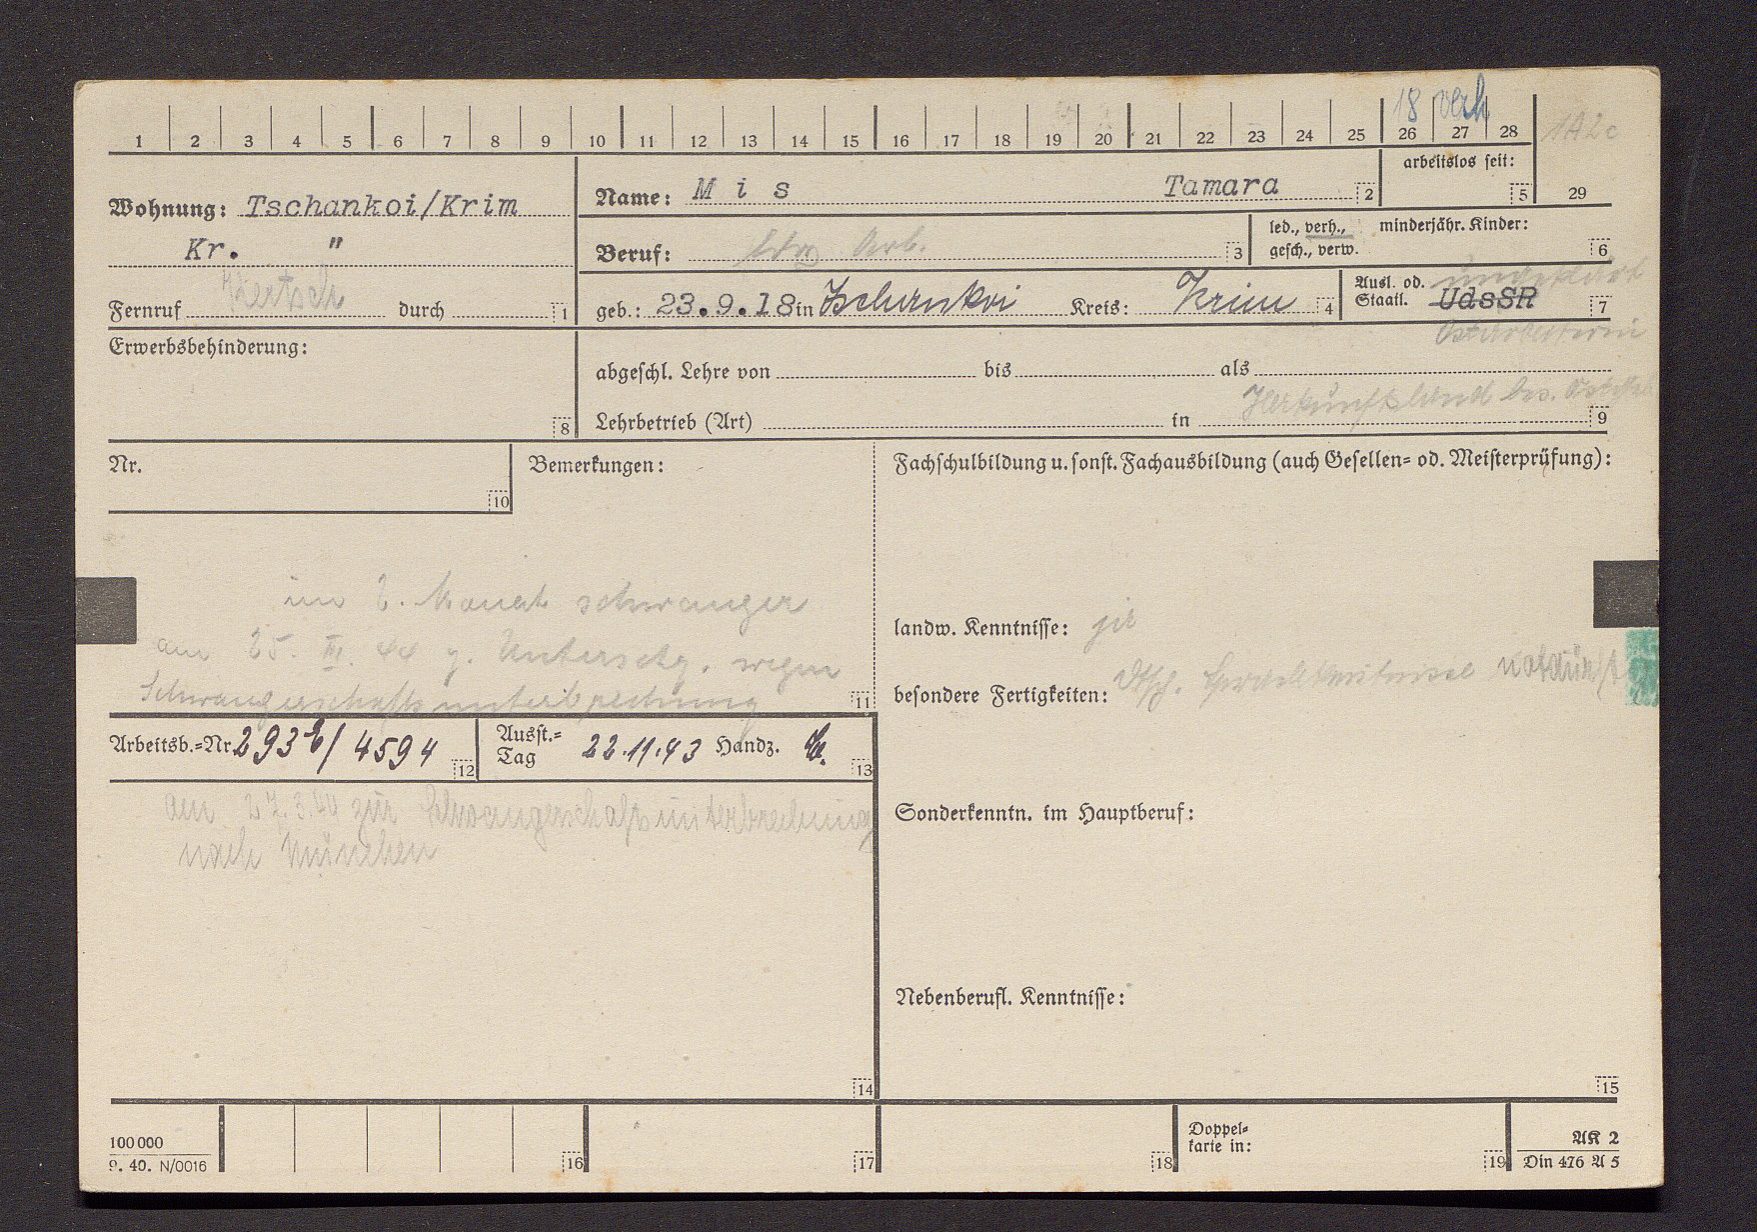 18 verh
1 2 3 4 5 6 7 8 9 10 11 12 13 14 15 16 17 18 19 20 21 22 23 24 25 26 27 28
1A2c
29
Wohnung: Tschankoi/Krim
Kr. "
Kertsch
Fernruf durch 1
Name: M i s Tamara 2
arbeitslos seit: 5
Beruf: Arb. 3
led., verh., gesch., verw.
minderjähr. Kinder: 6
geb.: 23.9.18 in Tschankoi Kreis: Krim 4
Ausl. od. Staatl. UdSSR 7
ungeklärt
Ostarbeiterin
Erwerbsbehinderung: 8
abgeschl. Lehre von bis als
Herkunftsland bes.
Lehrbetrieb (Art) in 9
Nr. 10
Bemerkungen:
im Monat schwanger
am 25. z. Unterschg. wegen
Schwangerschaftsunterbrechung 11
Arbeitsb.=Nr. 293 / 4594 12
Ausst.=Tag 22.11.43 Handz. 13
am 27.3.44 zur Schwangerschaftsunterbrechung
nach München
14
Fachschulbildung u. sonst. Fachausbildung (auch Gesellen= od. Meisterprüfung):
landw. Kenntnisse: ja
besondere Fertigkeiten: Dtsch. Sprachkentnisse notdürft
Sonderkenntn. im Hauptberuf:
Nebenberufl. Kenntnisse:
15
100 000
9. 40. N/0016
16 17 18
Doppel=karte in: 19
AK 2
Din 476 A 5